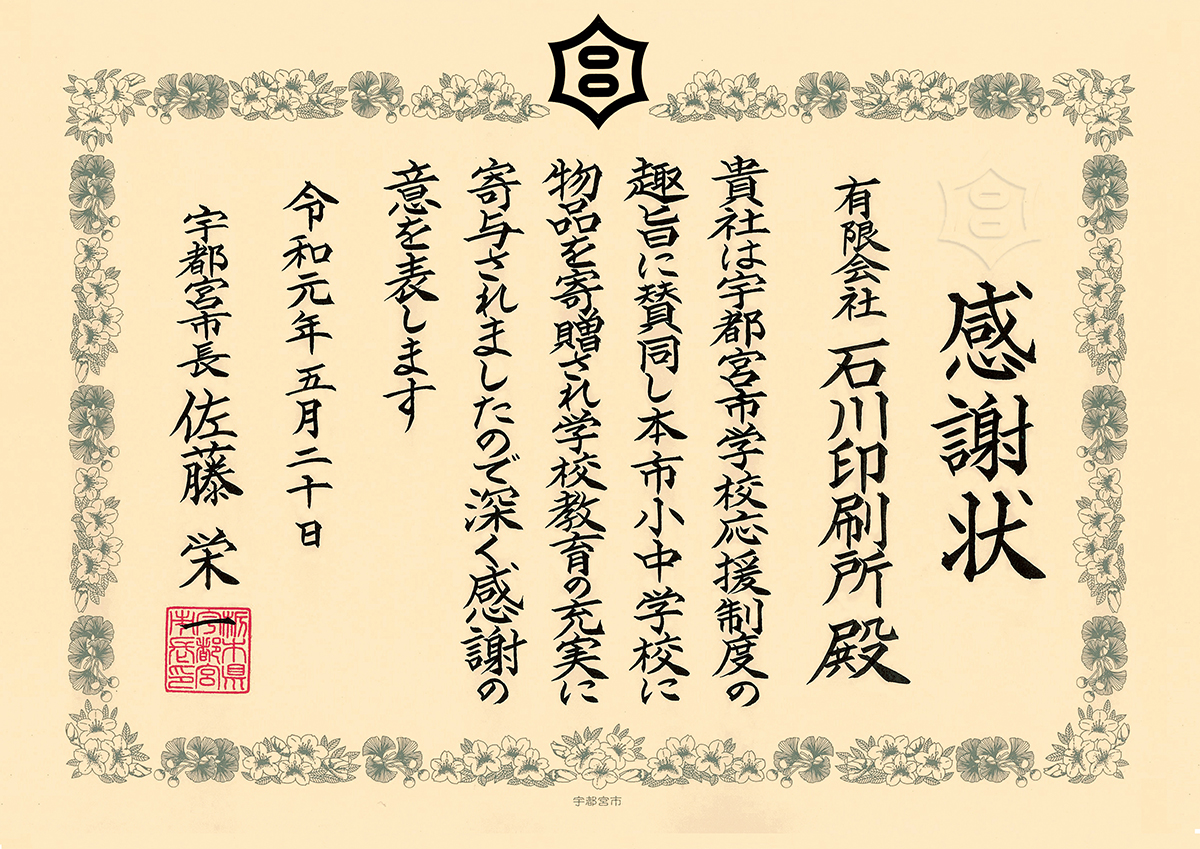 感謝状
有限会社 石川印刷所 殿
貴社は宇都宮市学校応援制度の
趣旨に賛同し本市小中学校に
物品を寄贈され学校教育の充実に
寄与されましたので深く感謝の
意を表します
令和元年五月二十日
宇都宮市長 佐藤 栄一
栃木県
宇都宮
市長印
宇都宮市